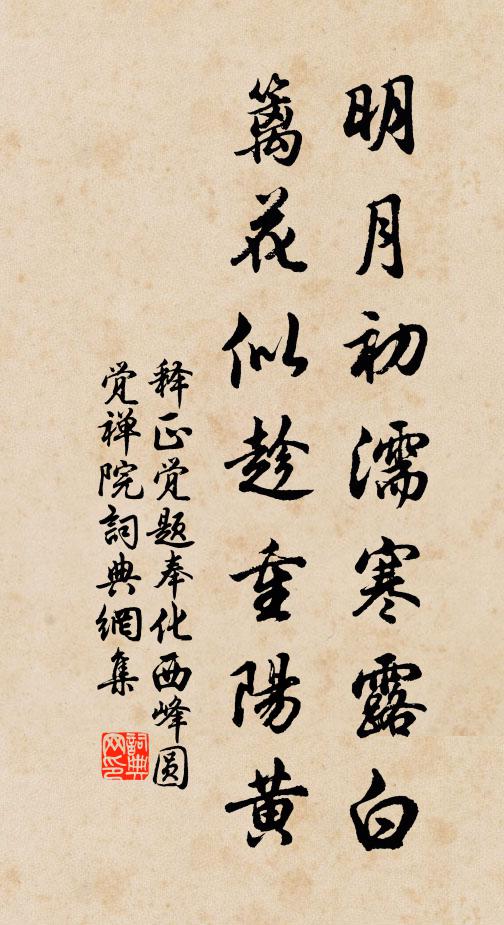 明月初濡寒露白
篱花似趁重陽黄
释正觉题奉化西峰圆
觉禅院詞典網集
詞典
网印